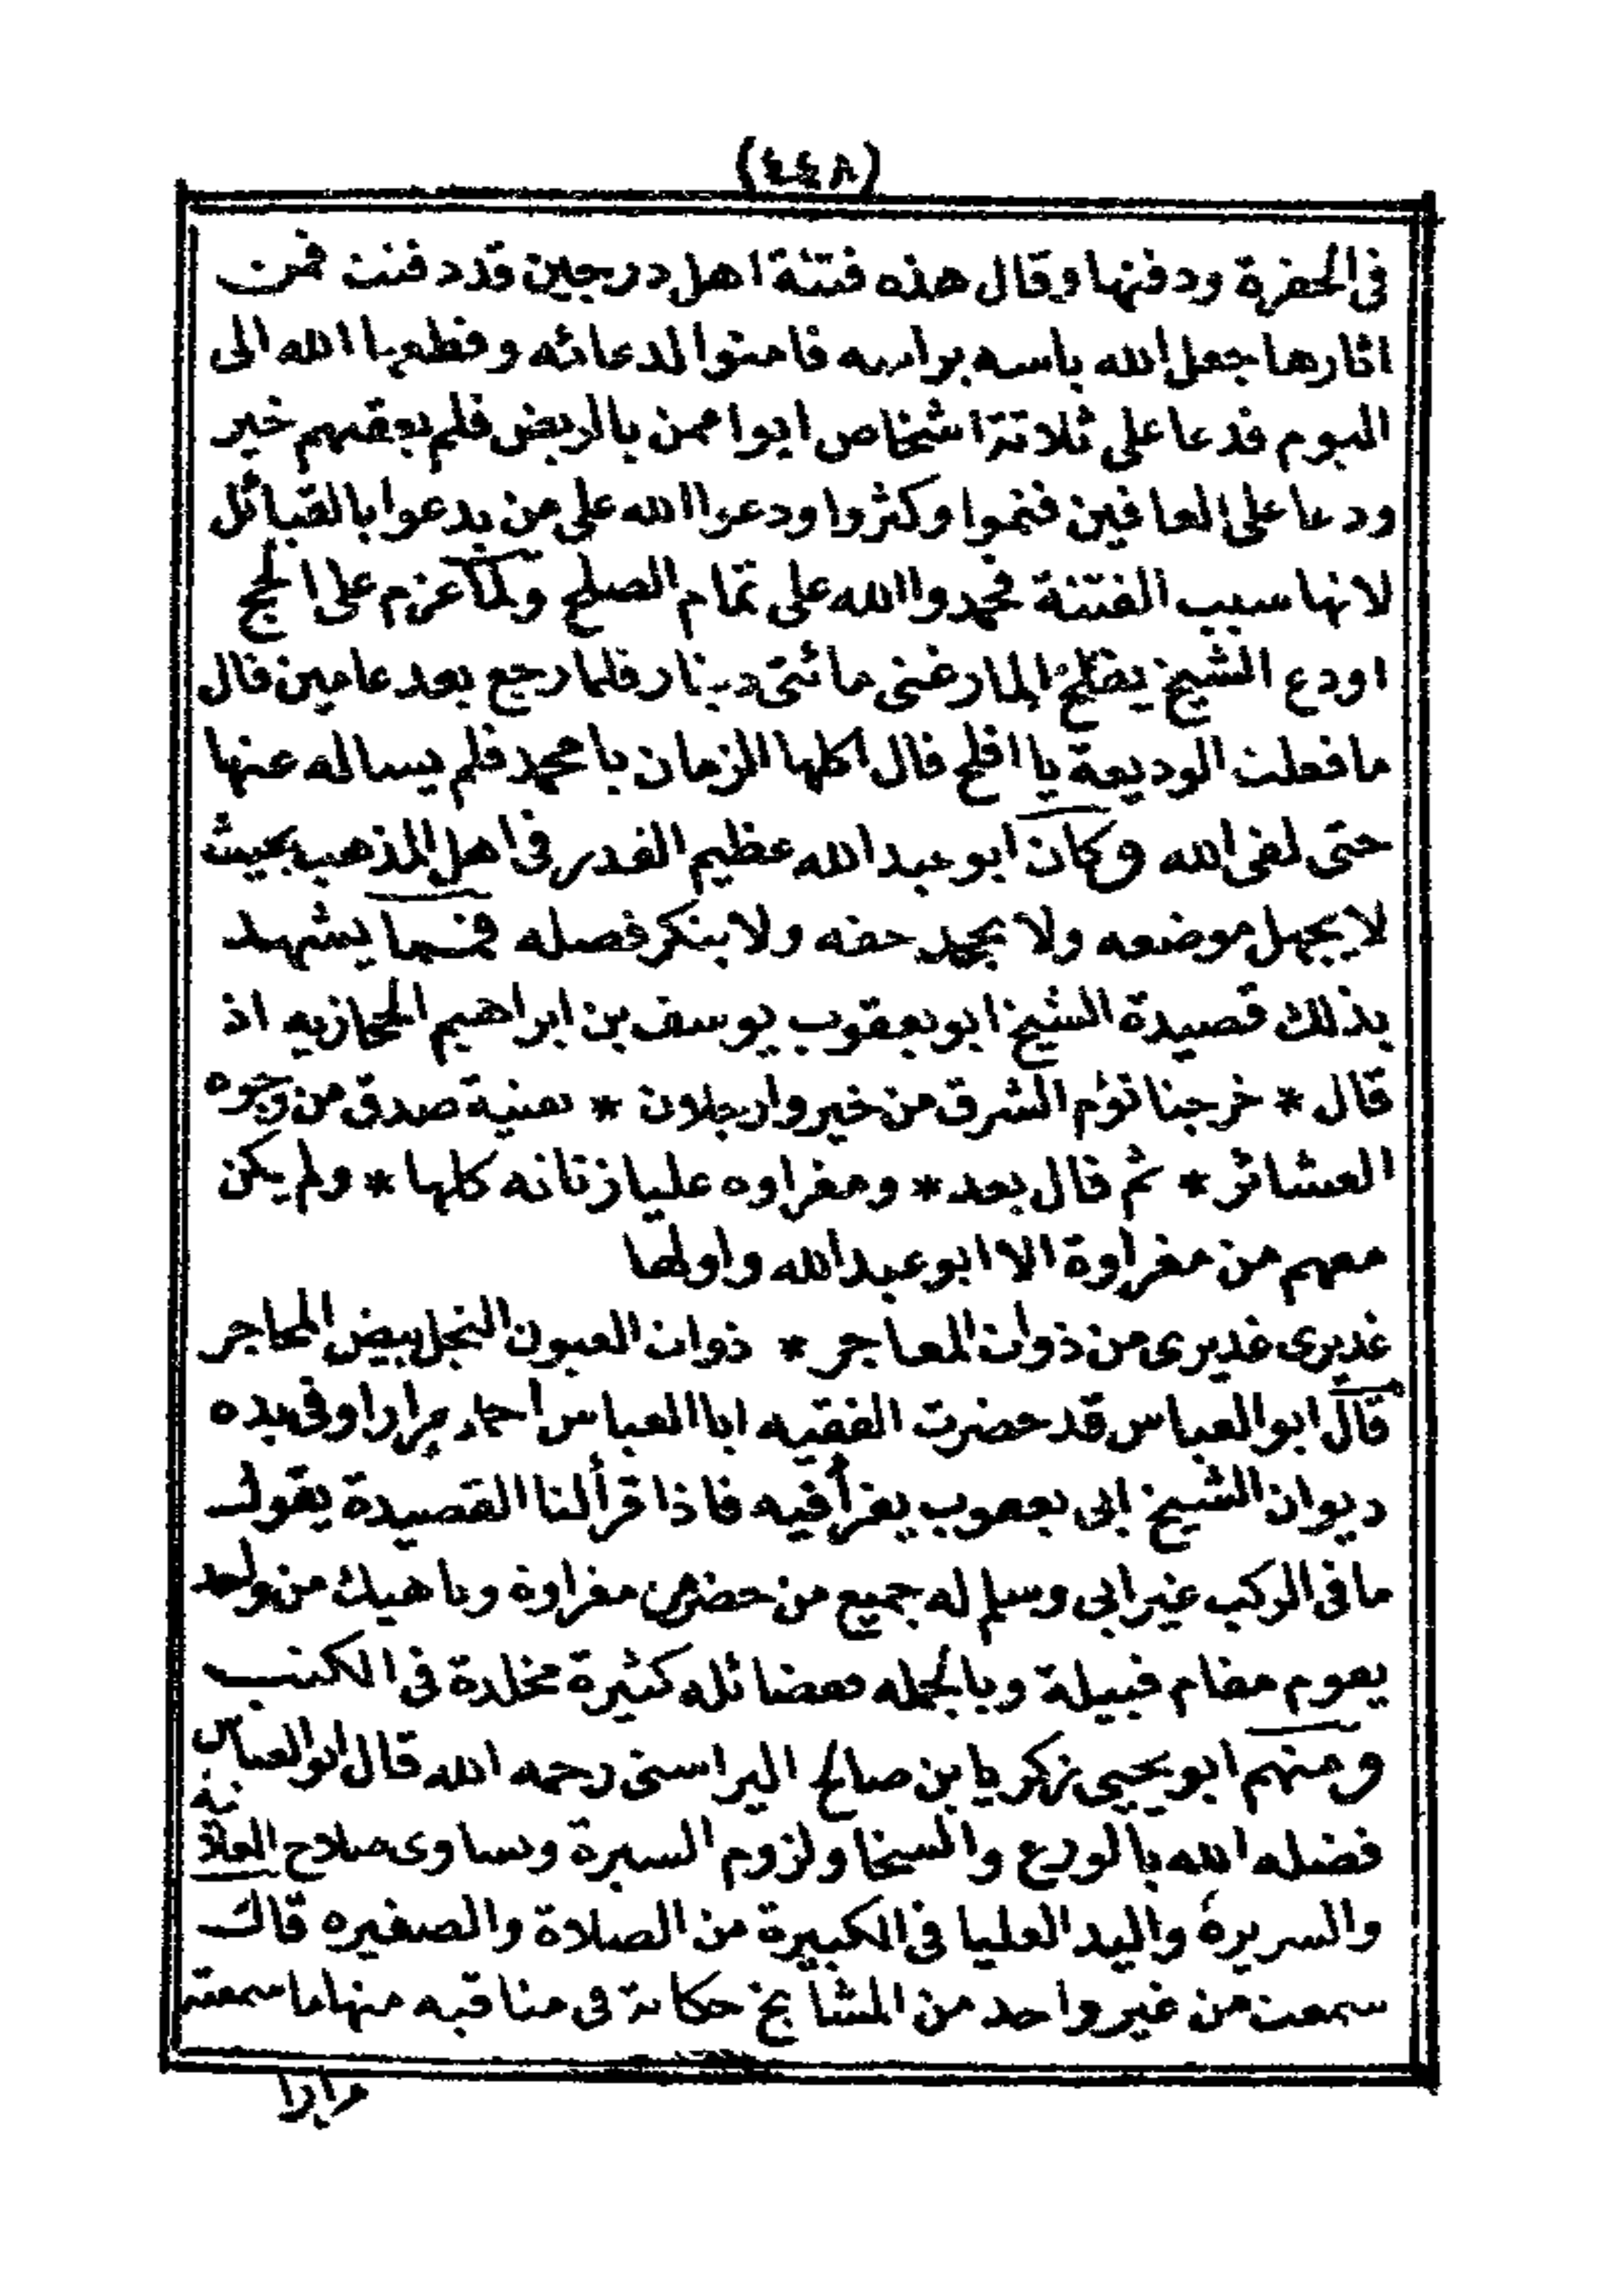 (٤٤٨)
فى الحفرة ودفنها وقال هذه فتنة اهل درجين قد دفنت فمن
اثارها جعل الله باسه براسه فامنوا لدعائه وقطعها الله الى
اليوم فدعا على ثلاثة اشخاص ابوا ممن بالربض فلم يعقبهم خير
ودعا على العافين فنموا وكثروا ودعوا الله على من يدعوا بالقبائل
لانها سبب الفتنة فحمدوا الله على تمام الصلح ولما عزم على الحج
اودع الشيخ يفلح المارغنى مائتى دينار فلما رجع بعد عامين قال
ما فعلت الوديعة يا افلح قال اكلها الزمان يا محمد فلم يساله عنها
حتى لقى الله وكان ابو عبد الله عظيم القدر فى اهل المذهب بحيث
لا يجهل موضعه ولا يجحد حقه ولا ينكر فضله فمما يشهد
بذلك قصيدة الشيخ ابو يعقوب يوسف بن ابراهيم الحجازيه اذ
قال * خرجنا نؤم الشرق من خير وارجلان * صدق من وجوه
العشائر * ثم قال بعد * ومغراوه عليا زناتة كلها * ولم يكن
معهم من مغراوة الا ابو عبد الله واولها
غديرى غديرى من ذوات المعاجر * ذوات العيون النجل بيض المحاجر
قال ابو العباس قد حضرت الفقيه ابا العباس احمد مرارا وفى يده
ديوان الشيخ ابى يعقوب يقرأ فيه فاذا قرأ لنا القصيدة يقول
ما فى الركب غير ابى وسلم له جميع من حضر من مغراوة وناهيك من واحد
يقوم مقام قبيلة وبالجمله ففضائله كثيرة مخلدة فى الكتب
ومنهم ابو يحيى زكريا بن صالح اليراسنى رحمه الله قال ابو العباس
فضله الله بالورع والسخا ولزوم السيرة وساوى صلاح العلانية
والسريرة واليد العليا فى الكبيرة من الصلاة والصغيره قال
سمعت من غير واحد من المشايخ حكاية فى مناقبه منها ما سمعته
مرارا